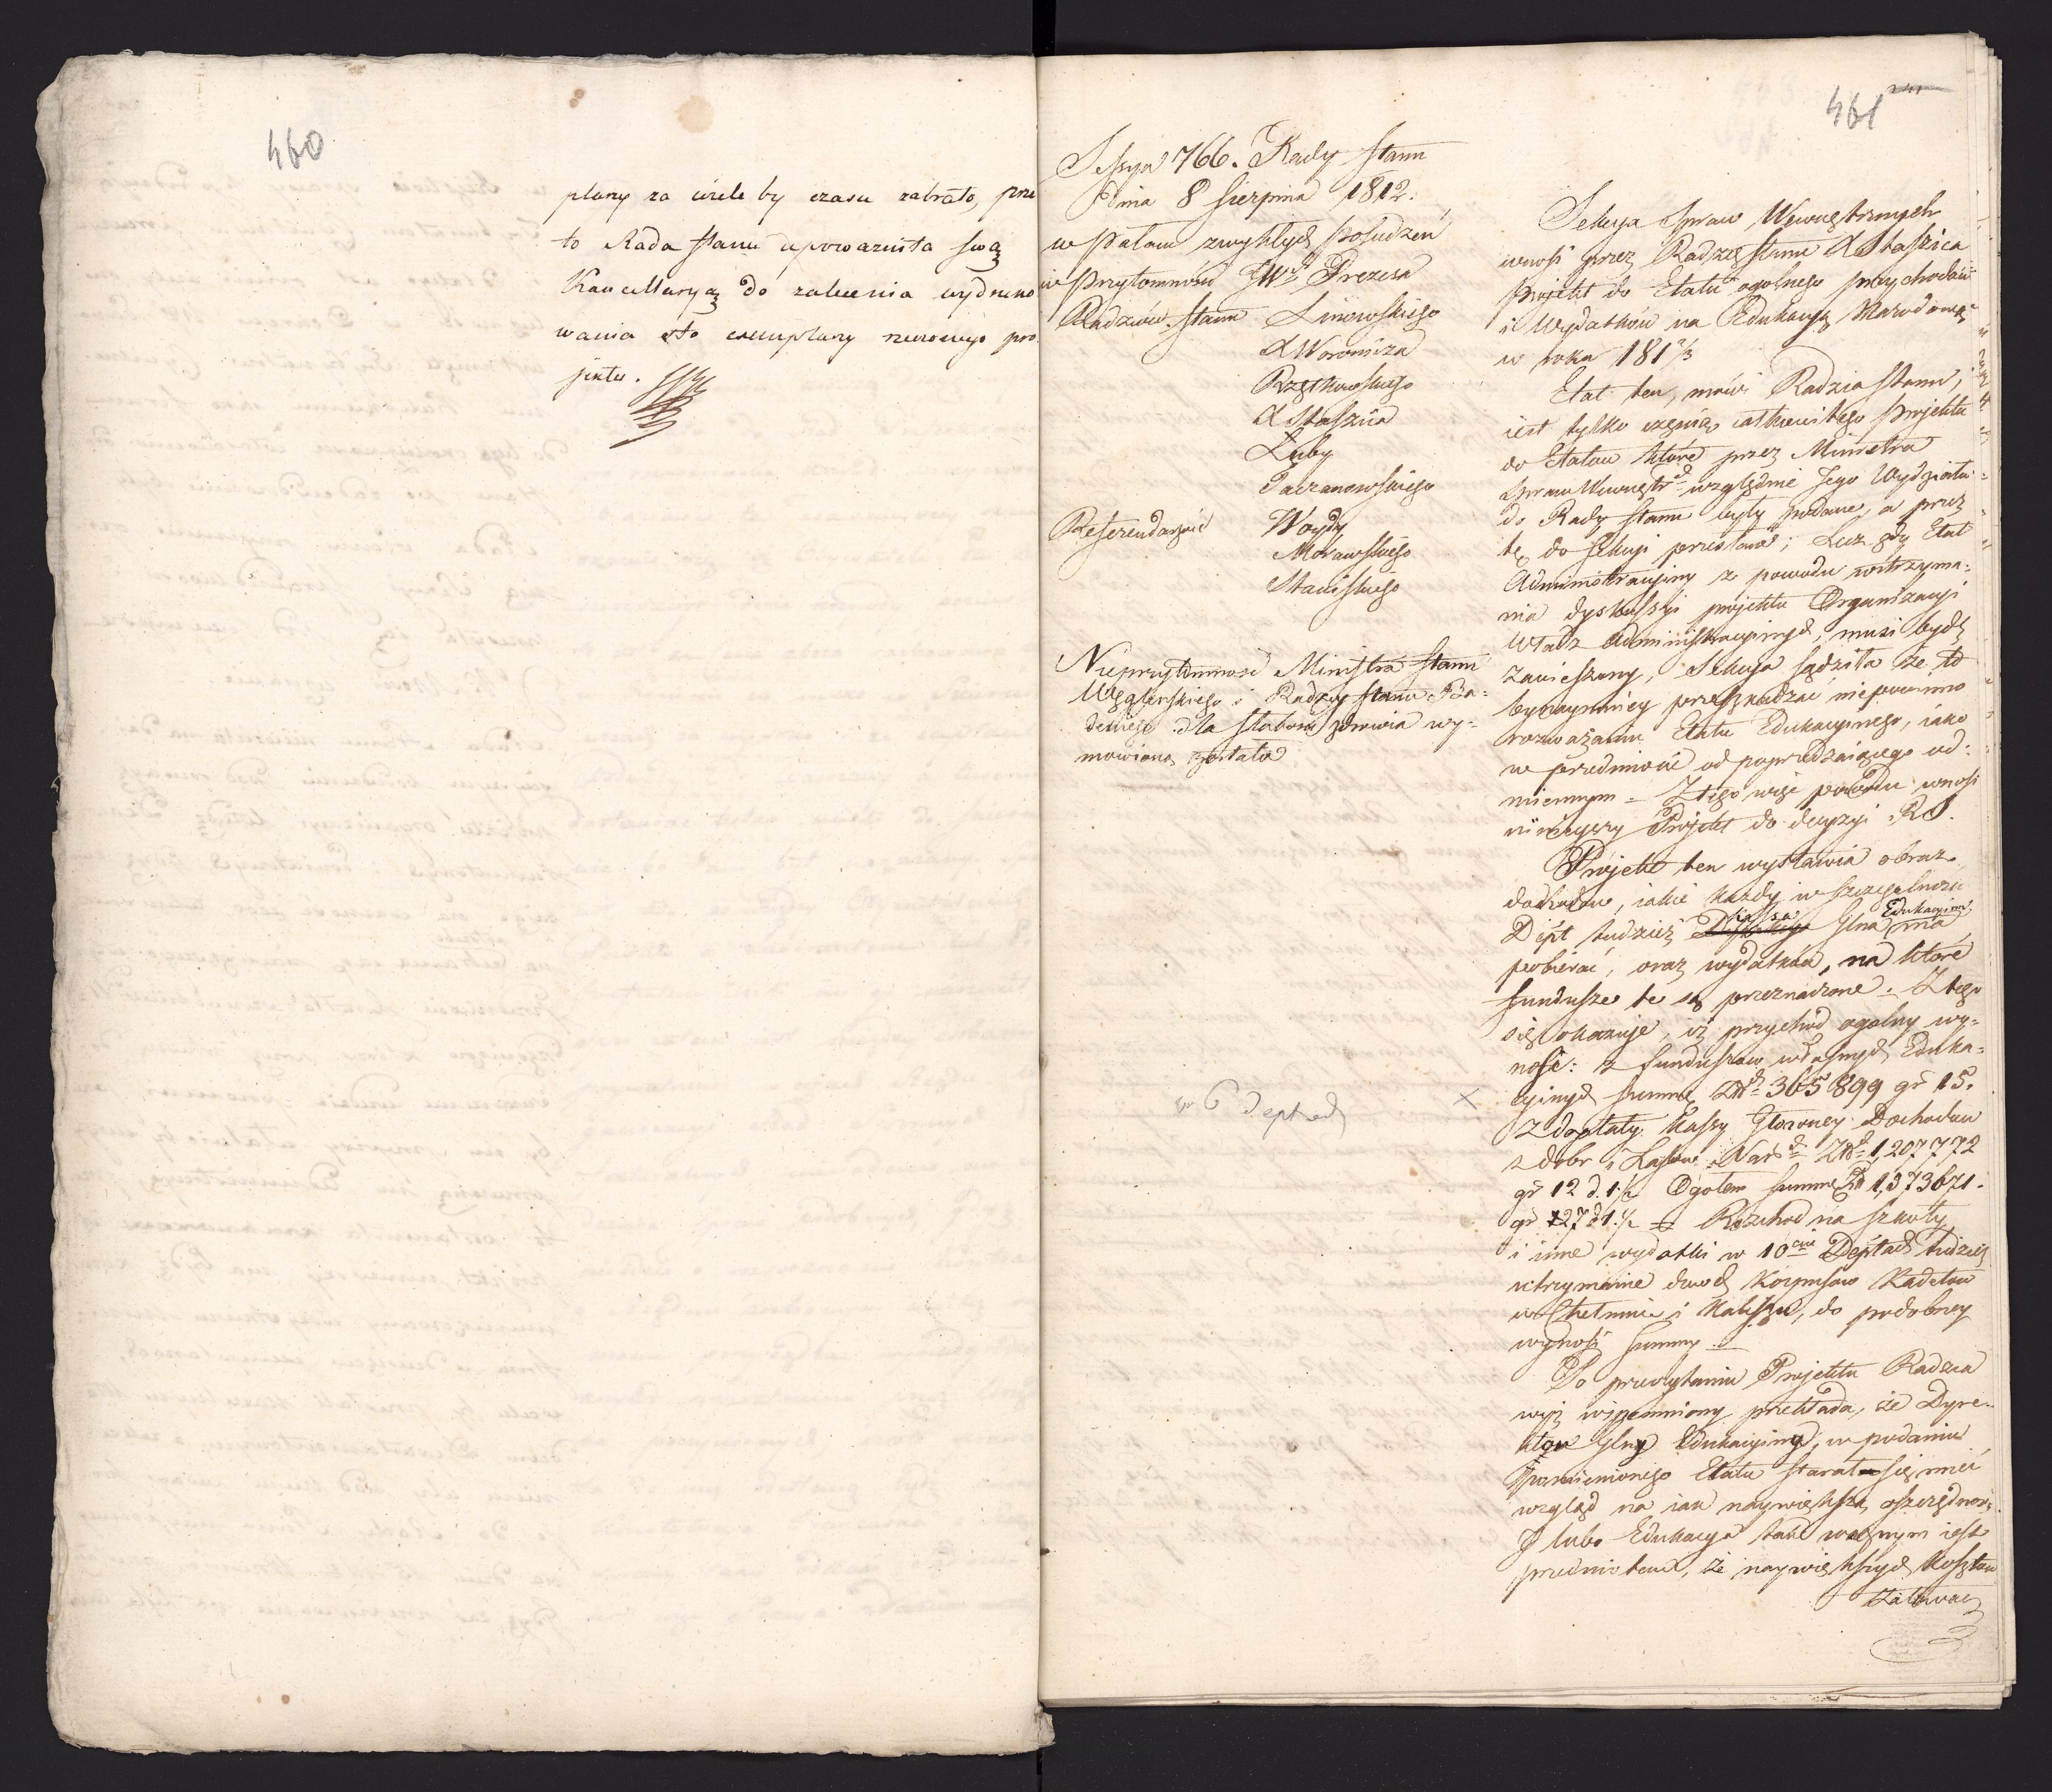 460
plany za wiele by czasu zabrało, prze
to Rada Stanu upoważniła swą
Kancellaryą do zalecenia wydruko
wania sto exemplarzy nowego pro
jektu.
461
Sessya 766. Rady Stanu
Dnia 8 Sierpnia 1812.
w Pałacu zwykłych Posiedzeń
w Przytomności JW Prezesa
Radzców Stanu Linowskiego
X Woronicza
Rzętkowskiego
X Staszica
Luby
Taczanowskiego
Referendarzów Woydy
Morawskiego
Nieprzytomność Ministra Stanu
Węgleńskiego i Radzcy Stanu Ba=
deniego dla słabości zdrowia wy=
mówioną została
w 6 deptach
X
Sekcya Spraw Wewnętrznych
wnosi przez Radzcę Stanu X Staszica
Projekt do Etatu ogolnego przychodów
i Wydatków na Edukacyą Narodową
w roku 181 2/3
Etat ten, mówi Radzca Stanu,
iest tylko częścią całkowitego Projektu
do Etatów które przez Ministra
Spraw Wewnętr. względnie Jego Wydziału
do Rady Stanu były podane, a przez
tę do Sekcyi przesłane; Lecz gdy Etat
Administracyiny z powodu wstrzyma=
nia dyskussyi projektu Organizacyi
Władz Administracyinych, musi bydź
zawieszony, Sekcya sądziła że to
bynaymniey przeszkadzać nie powinno
rozważaniu Etatu Edukacyinego, iako
w przedmiocie od poprzedzaiącego od=
miennym = Z tego więc powodu wnosi
ninieyszy Projekt do decyzyi R S.
Projekt ten wystawia obraz
dochodów, iakie każdy w szczegulności
Dept tudzież Kassa Glna Edukacyina ma
pobierać, oraz wydatków, na które
fundusze te są przeznaczone. Z tego
się okazuje, iż przychód ogolny wy=
nosi: z funduszow własnych Eduka=
cyinych summę Zł 365 899 gr 15.
Z dopłaty Kassy Głowney Dochodów
z dobr i Lasów Nar Zł 1,207 772
gr 12 d. 1 1/2 Ogołem summę Zł 1,573671.
gr 27 d 1. 1/2 = Rozchod na szkoły
i inne wydatki w 10 Deptach tudzież
utrzymanie dwóch Korpusow Kadetów
w Chełmnie i Kaliszu, do podobney
wynosi summy =
Po przeczytaniu Projektu Radzca
wyż wspomniony przekłada, że Dyre=
ktor Glny Edukacyiny, w podaniu
wzmienionego Etatu starał się mieć
wzgląd na iak naywiększą oszczędność
I lubo Edukacya tak ważnym iest
przedmiotem, że naywiększych kosztów
żałować